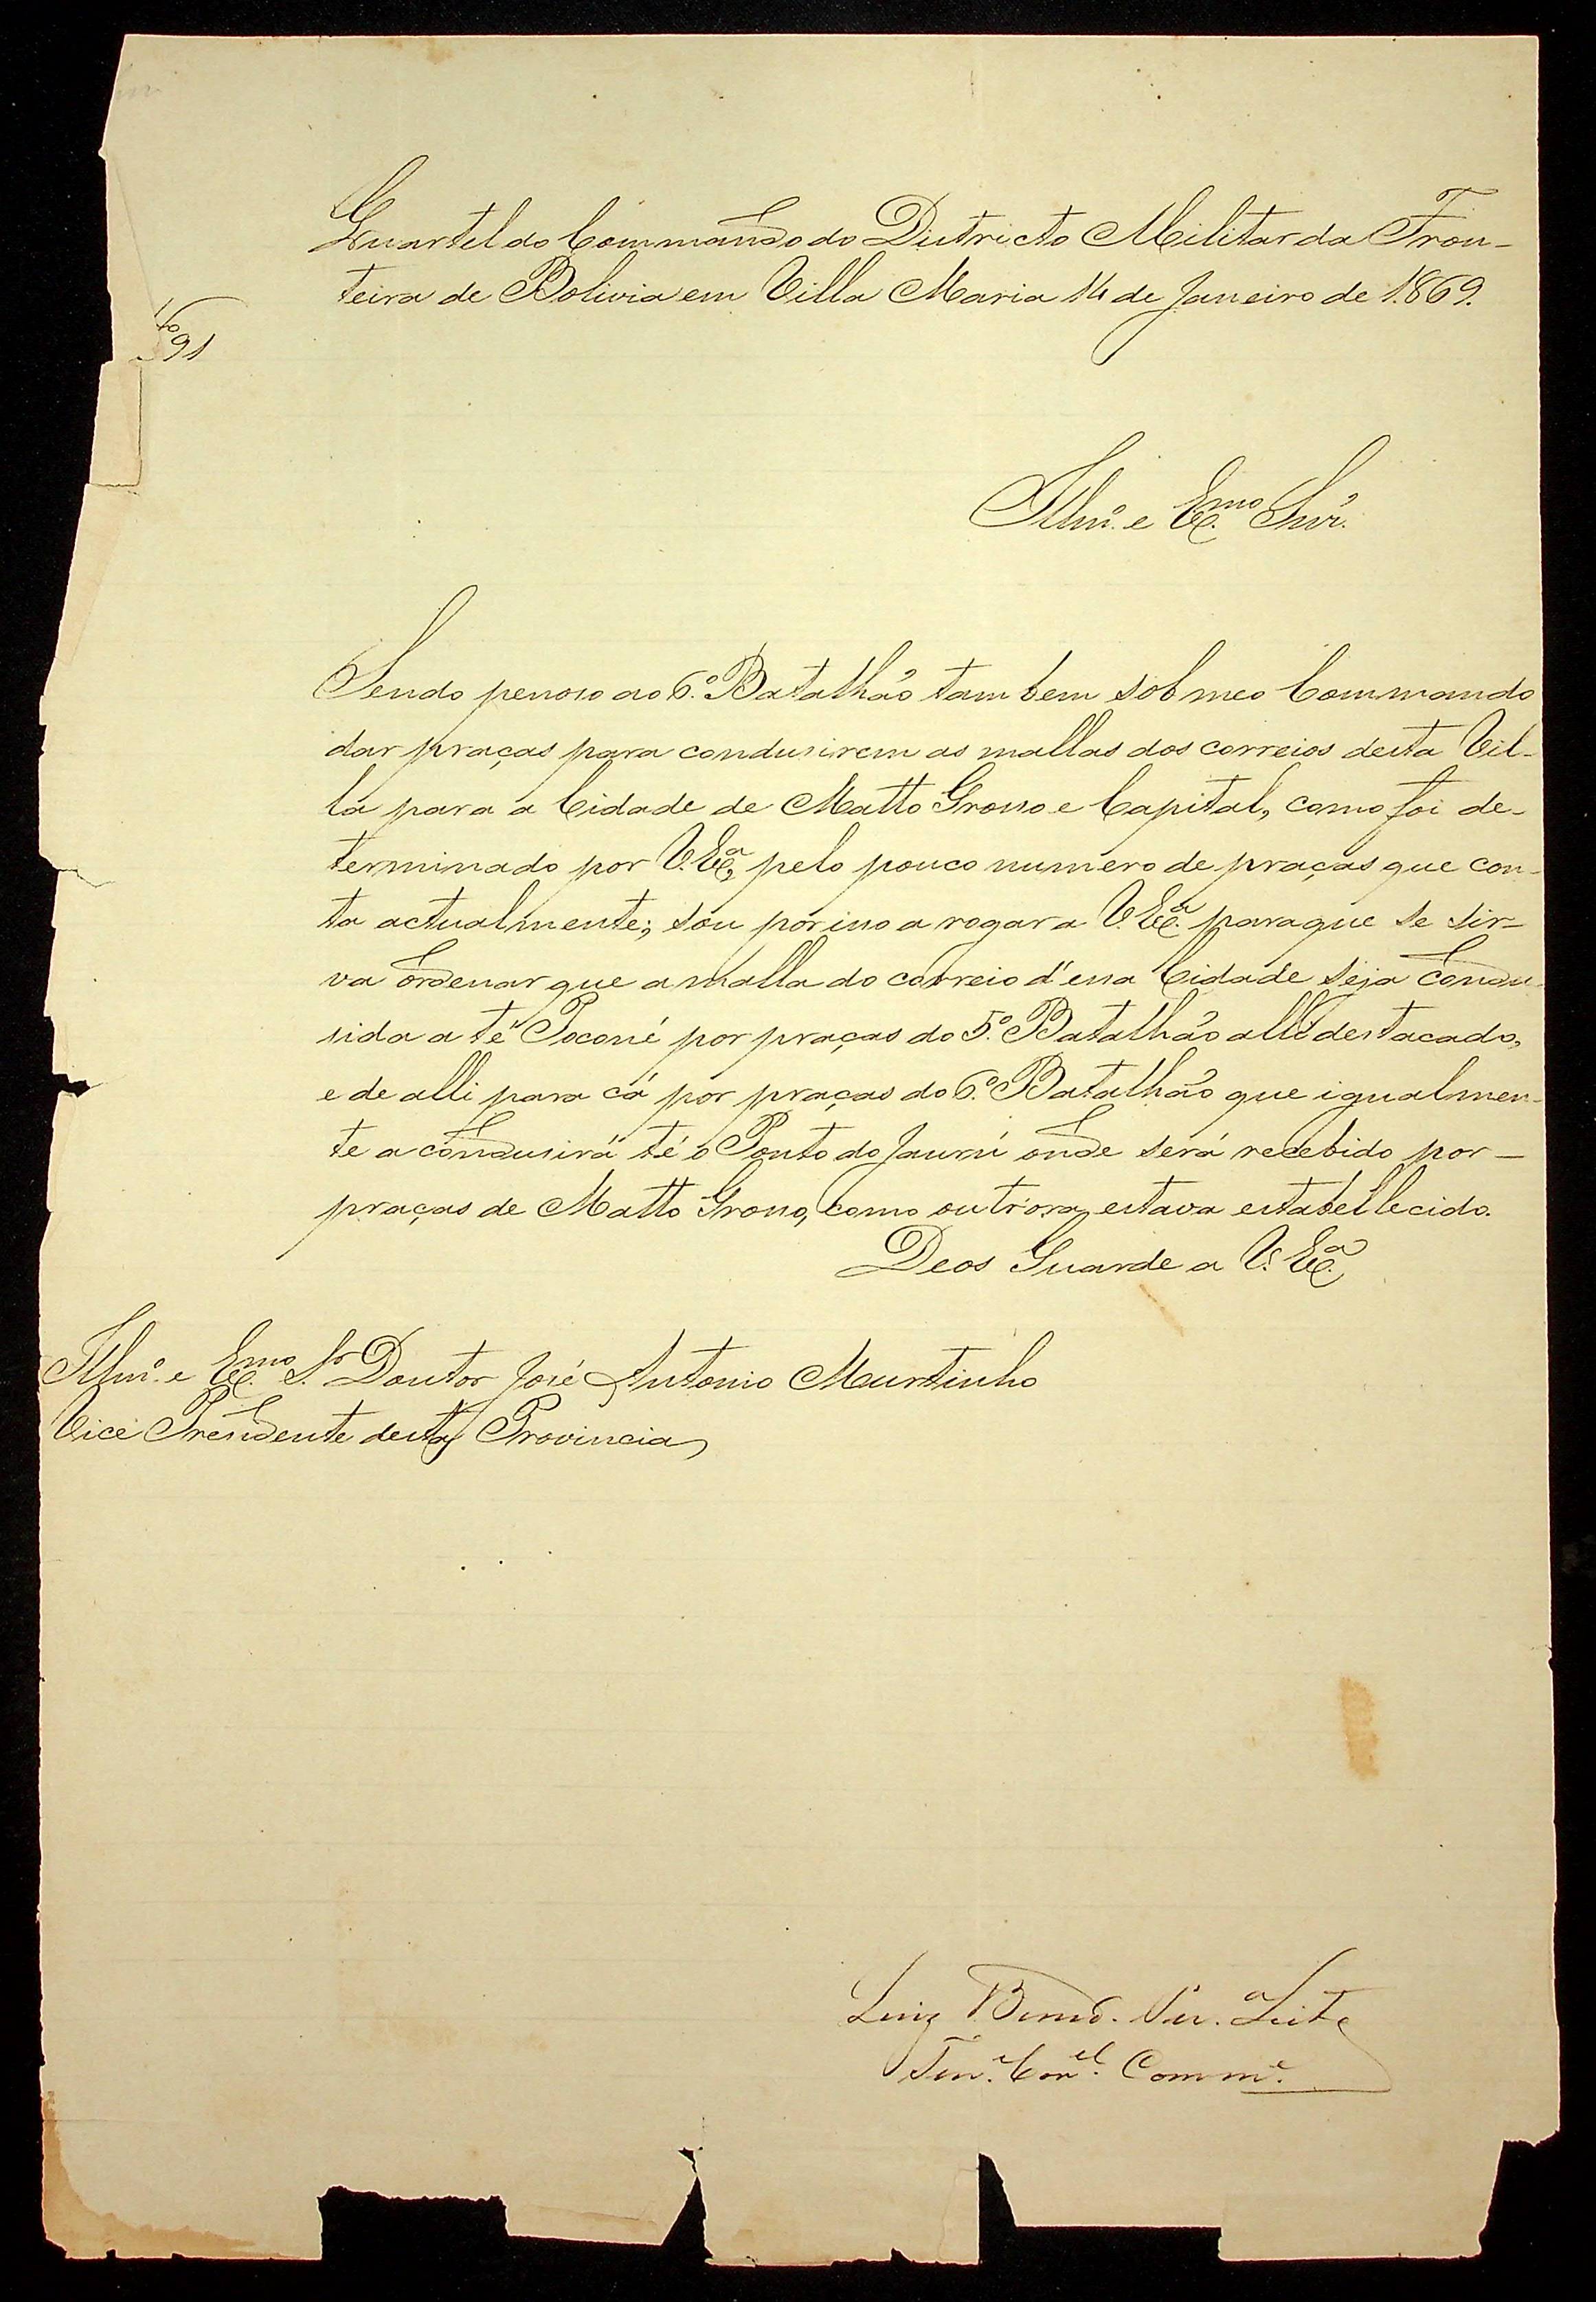 Quartel do Commando do Districto Militar da Fron-
teira de Bolivia em Villa Maria 14 de Janeiro de 1869.
N.º 91
Illmº. e Exc.mo Snr.
Sendo penoso ao 6.º Batalhão tambem sob meo Commando
dar praças para condusirem as mallas dos correios desta Vil-
la para a Cidade de Matto Grosso e Capital, como foi de-
terminado por V. Exc.ª, pelo pouco numero de praças que con-
ta actualmente; sou por isso a rogar a V. Exc.ª para que se sir-
va ordenar que a malla do correio d'essa Cidade seja condu-
sida a té Poconé por praças do 5.º Batalhão alli destacado,
e de alli para cá por praças do 6.º Batalhão que igualmen-
te a condusirá té o Ponto do Jaurú onde será recebido por-
praças de Matto Grosso, como outr'ora estava estabellecido.
Deos Guarde a V. Exc.ª
Illmº. e Exc.mo S.r Doutor José Antonio Murtinho
Vice Presidente desta Provincia
Luiz Bened. Per.ª Leite
Ten.e Cor.el Comm.e